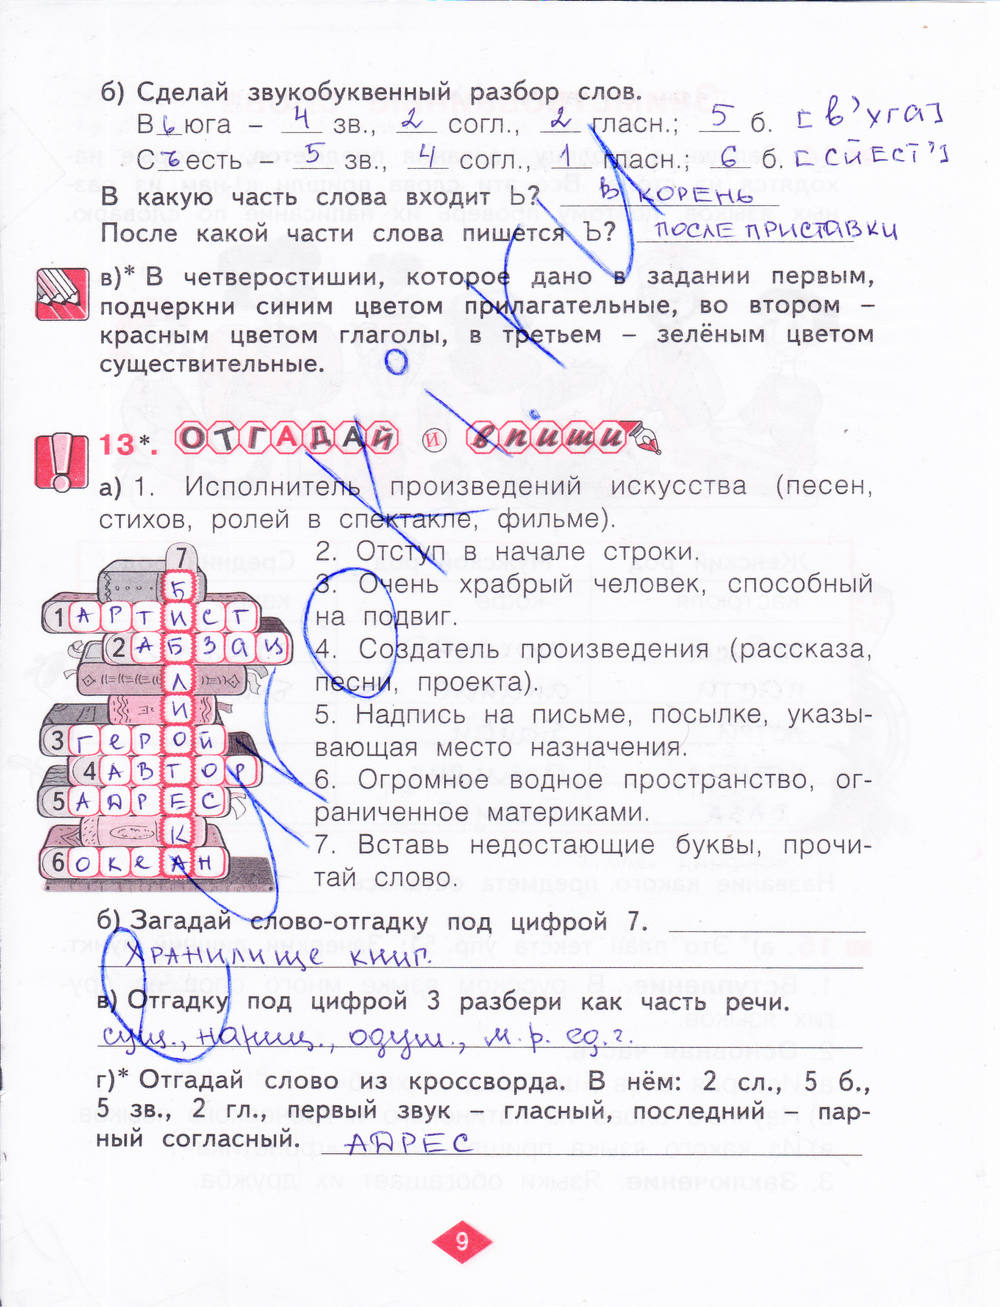 б) Сделай звукобуквенный разбор слов.
Вьюга – 4 зв., 2 согл., 2 гласн.; 5 б. [в'уга]
Съесть – 5 зв., 4 согл., 1 гласн.; 6 б. [сйест']
В какую часть слова входит Ь? В КОРЕНЬ
После какой части слова пишется Ъ? ПОСЛЕ ПРИСТАВКИ
в)* В четверостишии, которое дано в задании первым,
подчеркни синим цветом прилагательные, во втором –
красным цветом глаголы, в третьем – зелёным цветом
существительные.
13*. ОТГАДАЙ И ВПИШИ
а) 1. Исполнитель произведений искусства (песен,
стихов, ролей в спектакле, фильме).
2. Отступ в начале строки.
3. Очень храбрый человек, способный
на подвиг.
4. Создатель произведения (рассказа,
песни, проекта).
5. Надпись на письме, посылке, указы-
вающая место назначения.
6. Огромное водное пространство, ог-
раниченное материками.
7. Вставь недостающие буквы, прочи-
тай слово.
7
Б
1 АРТИСТ
2 АБЗАЦ
Л
И
3 ГЕРОЙ
4 АВТОР
5 АДРЕС
К
6 ОКЕАН
б) Загадай слово-отгадку под цифрой 7.
ХРАНИЛИЩЕ КНИГ.
в) Отгадку под цифрой 3 разбери как часть речи.
сущ., нариц., одуш., м.р. ед.г.
г)* Отгадай слово из кроссворда. В нём: 2 сл., 5 б.,
5 зв., 2 гл., первый звук – гласный, последний – пар-
ный согласный. АДРЕС
9